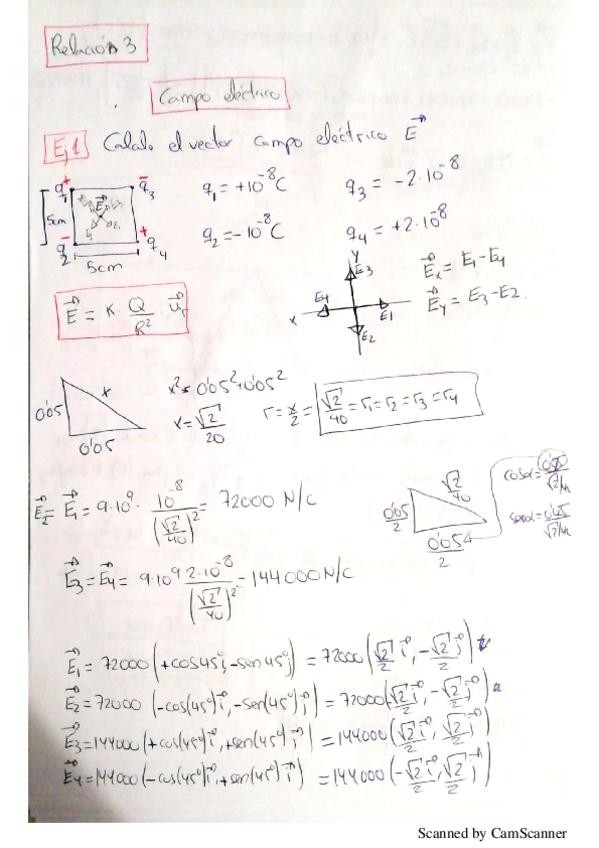 Relación 3
Campo eléctrico
Ej1 Calcula el vector campo eléctrico E
q1 + - q3
q1 = +10^-8 C q3 = -2·10^-8
5cm
q2 = -10^-8 C q4 = +2·10^-8
q2 - + q4
5cm
y E3
E4 x E1
E2
Ex = E1 - E4
Ey = E3 - E2.
E = K · Q/R² · ur
x² = 0'05² + 0'05²
0'05 x
0'05
x = √2/20 r = x/2 = √2/40 = r1 = r2 = r3 = r4
E2 = E1 = 9·10^9 · 10^-8/(√2/40)² = 72000 N/C
0'05/2 √2/40 0'05/2
cosα =
senα =
E3 = E4 = 9·10^9 2·10^-8/(√2/40)² = 144000 N/C
E1 = 72000 (+cos45° i, -sen45° j) = 72000 (√2/2 i, -√2/2 j)
E2 = 72000 (-cos(45°) i, -sen(45°) j) = 72000 (√2/2 i, -√2/2 j)
E3 = 144000 (+cos(45°) i, +sen(45°) j) = 144000 (√2/2 i, √2/2 j)
E4 = 144000 (-cos(45°) i, +sen(45°) j) = 144000 (-√2/2 i, √2/2 j)
Scanned by CamScanner